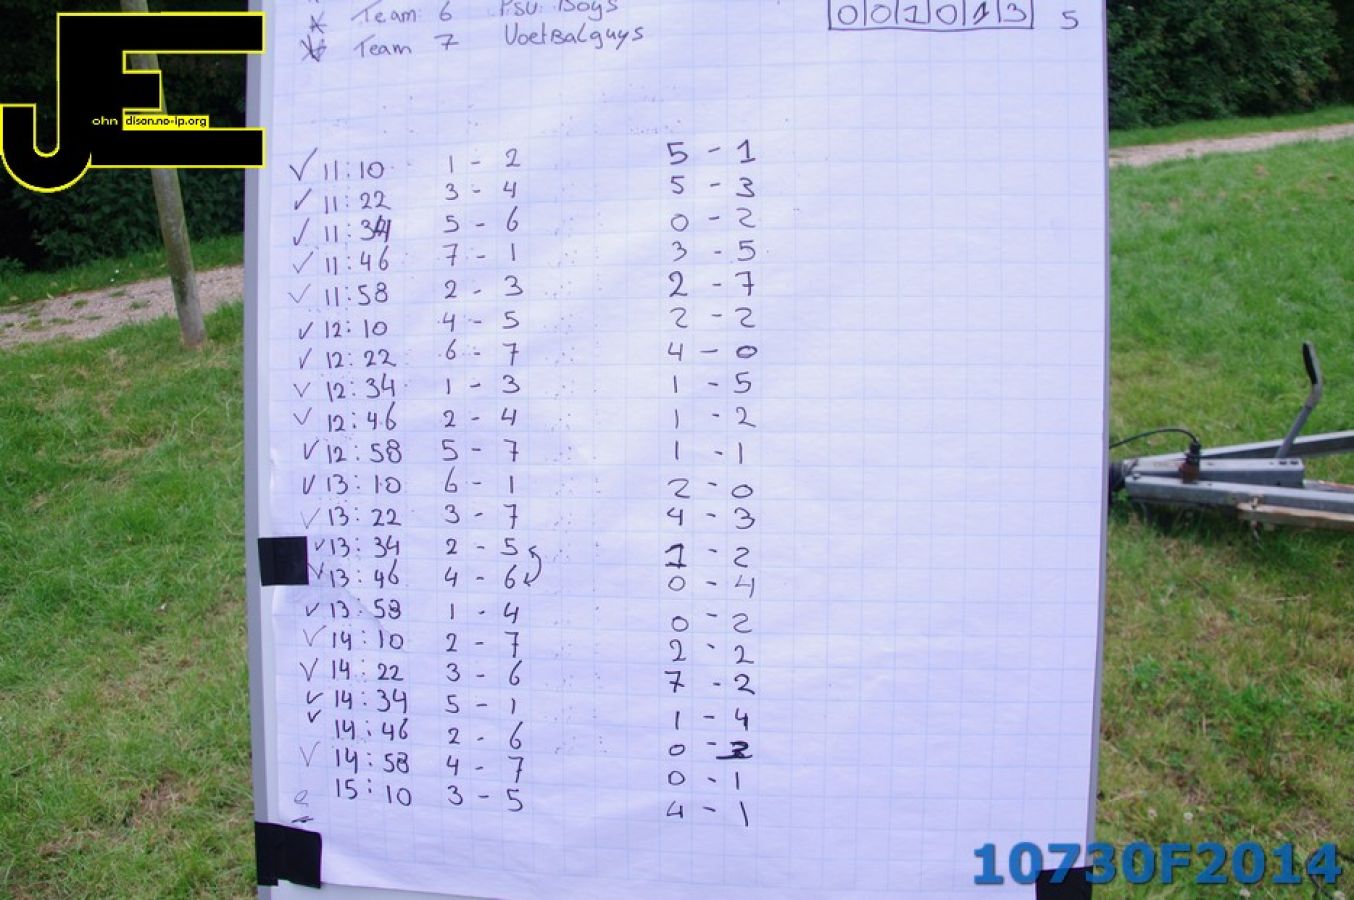 Team 6 PSV Boys 0 0 1 0 1 3 5
Team 7 Voetbalguys
ohn dison.no-ip.org
11:10 1 - 2 5 - 1
11:22 3 - 4 5 - 3
11:34 5 - 6 0 - 2
11:46 7 - 1 3 - 5
11:58 2 - 3 2 - 7
12:10 4 - 5 2 - 2
12:22 6 - 7 4 - 0
12:34 1 - 3 1 - 5
12:46 2 - 4 1 - 2
12:58 5 - 7 1 - 1
13:10 6 - 1 2 - 0
13:22 3 - 7 4 - 3
13:34 2 - 5 1 - 2
13:46 4 - 6 0 - 4
13:58 1 - 4 0 - 2
14:10 2 - 7 2 - 2
14:22 3 - 6 7 - 2
14:34 5 - 1 1 - 4
14:46 2 - 6 0 -
14:58 4 - 7 0 - 1
15:10 3 - 5 4 - 1
10730F2014